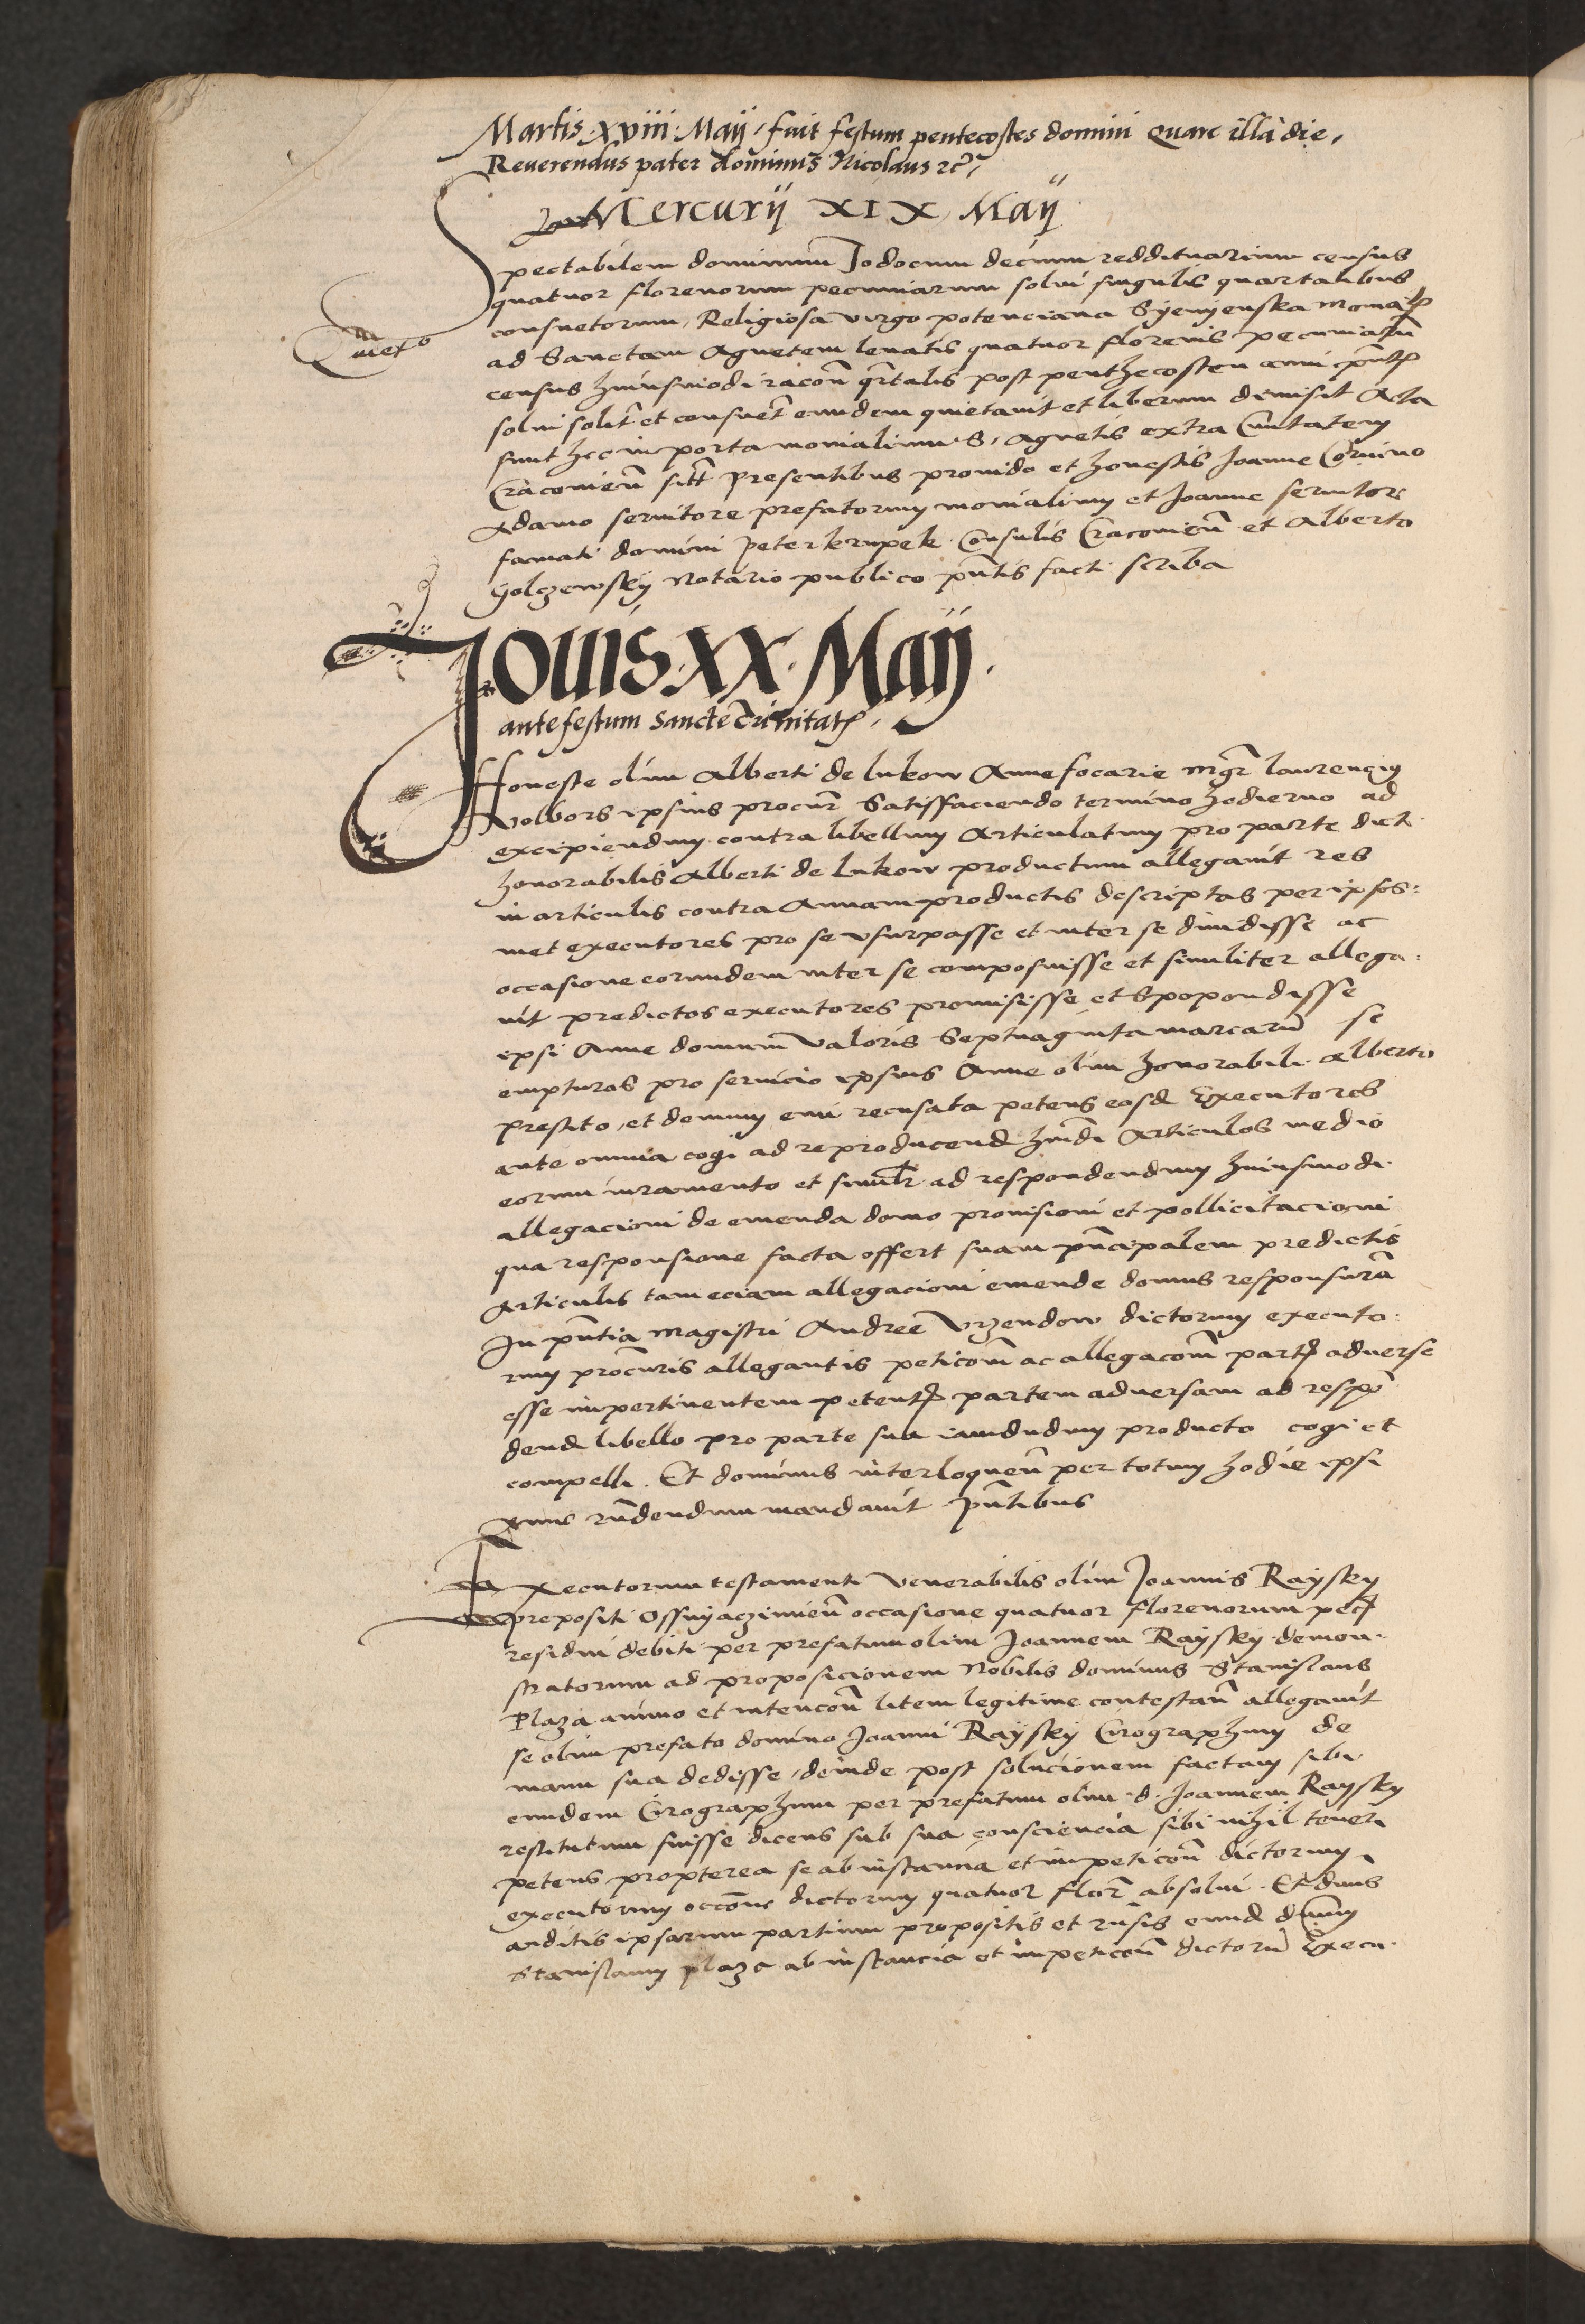 Martis xviii Maij fuit festum pentecostes domini Quare illa die
Reverendus pater dominus Nicolaus rc̃
Mercurij XIX Maij
Spectabilem dominum Jodocum decium reddituarium census
quatuor florenorum pecuniarum solui singulis quartalibus
consuetorum, Religiosa virgo potenciana Syenyenska
Quiet°
ad Sanctam Agnetem leuatis quatuor florenis pecuniarũ
census huiusmodi racoñ qrtalis post penthecosten anni pñtis
solui solit̃ et consuet̃ eundem quietauit et liberum dimisit Acta
sunt hec in porta monialium S. Agnetis extra Ciuitatem
Cracouieñ sitt̃ Presentibus prouido et honestis Joanne Coruino
Adamo seruitore prefatorum monialium et Joanne seruitore
famati domini Peter krupek Consulis Cracouieñ et Alberto
Golczewsky Notario publico pñtis facti scriba
Jouis XX Maij
ante festum Sancte Trinitatis
Honeste olim Alberti de lukow Anne focarie mgr̃ laurencius
Volbors ipsius procur̃ Satisfaciendo termino hodierno ad
excipiendum contra libellum Articulatum pro parte dict
honorabilis Alberti de lukow productum allegauit res
in articulis contra Annam productis descriptas per ipsos
met executores pro se vsurpasse et inter se diuidisse ac
occasione eorundem inter se composuisse et similiter allega
uit predictos executores promisisse et Spopondisse
ipsi Anne domum valoris Septuaginta marcarũ se
empturos pro seruicio ipsius Anne olim honorabili Alberto
prestito, et demum emi recusata petens eosd Executores
ante omnia cogi ad reproducend hmõi Articulos medio
eorum iuramento et simulr̃ ad respondendum huiusmodi
allegacioni de emenda domo promisioni et pollicitacioni
qua responsione facta offert suam pñcipalem predictis
Articulis tam eciam allegacioni emende domus responsurã
In pñtia magistri Andree Vrzendow dictorum executo
rum procuris allegantis peticoñ ac allegacoñ partis aduerse
esse impertinentem petentis partem aduersam ad respõ
dend libello pro parte sua iamdudum producto cogi et
compelli. Et dominus interloqueñ per totum hodie ipsi
Anne rñdendum mandauit pñtibus
Executorum testamenti venerabilis olim Joannis Raysky
prepositi Osswyaczimeñ occasione quatuor florenorum pec
residui debiti per prefatum olim Joannem Raysky demon
stratorum ad proposicionem Nobilis dominus Stanislaus
Plaza animo et intencoñ litem legitime contestañ allegauit
se olim prefato domino Joanni Raysky Cirographum de
manu sua dedisse, deinde post solucionem factam sibi
eundem Cirographum per prefatum olim d. Joannem Raysky
restitutum fuisse dicens sub sua consciencia sibi nihil teneri
petens propterea se ab instancia et impeticoñ dictorum
executorum occõne dictorum quatuor flor̃ absolui. Et dnus
auditis ipsarum partium propositis et rñsis eund dñum
Stanislaum plaza ab instancia et impeticoñ dictorũ Execu